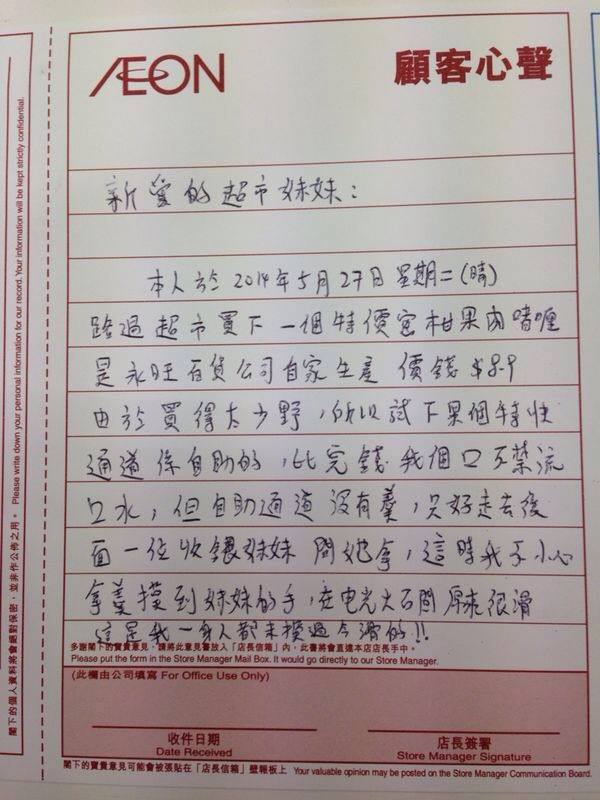 ÆON
顧客心聲
新愛的超市妹妹：
本人於2014年5月27日星期二(晴)
路過超市買下一個特價蜜柑果肉啫喱
是永旺百貨公司自家生產 價錢$8.9
由於買得太少野，所以試下果個特快
通道係自助的，比完錢我個口不禁流
口水，但自助通道沒有羹，只好走去後
面一位收銀妹妹問她拿，這時我不小心
拿羹摸到妹妹的手，在電光火石間 厚來很滑
這是我一身人都未摸過今滑的!!
多謝閣下的寶貴意見，請將此意見書放入「店長信箱」內，此書將會直達本店店長手中。
Please put the form in the Store Manager Mail Box. It would go directly to our Store Manager.
(此欄由公司填寫 For Office Use Only)
收件日期
Date Received
店長簽署
Store Manager Signature
閣下的寶貴意見可能會被張貼在「店長信箱」壁報板上 Your valuable opinion may be posted on the Store Manager Communication Board.
閣下的個人資料將會絕對保密，並非作公佈之用。 Please write down your personal information for our record. Your information will be kept strictly confidential.